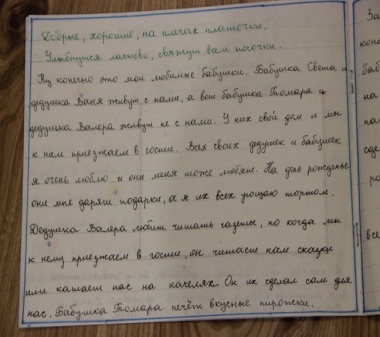 Добрые, хорошие, на плечах платочки,
Улыбнутся ласково, свяжут вам носочки.
Ну конечно это мои любимые бабушки. Бабушка Света и
дедушка Ваня живут с нами, а вот бабушка Томара и
дедушка Валера живут не с нами. У них свой дом и мы
к ним приезжаем в гости. Всех своих дедушек и бабушек
я очень люблю и они меня тоже любят. На день рожденье
они мне дарят подарки, а я их всех угощаю тортом.
Дедушка Валера любит читать газеты, но когда мы
к нему приезжаем в гости, он читает нам сказки
или катает нас на качелях. Он их сделал сам для
нас. Бабушка Томара печёт вкусные пирожки.